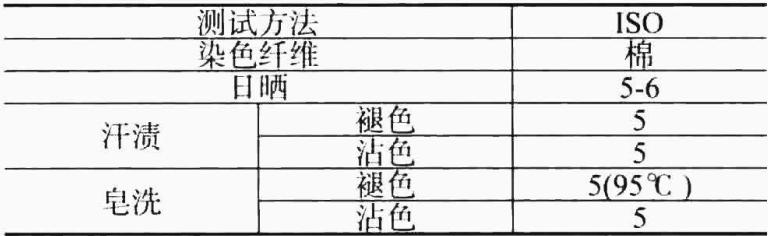 测试方法 ISO
染色纤维 棉
日晒 5-6
汗渍 褪色 5
沾色 5
皂洗 褪色 5(95℃)
沾色 5